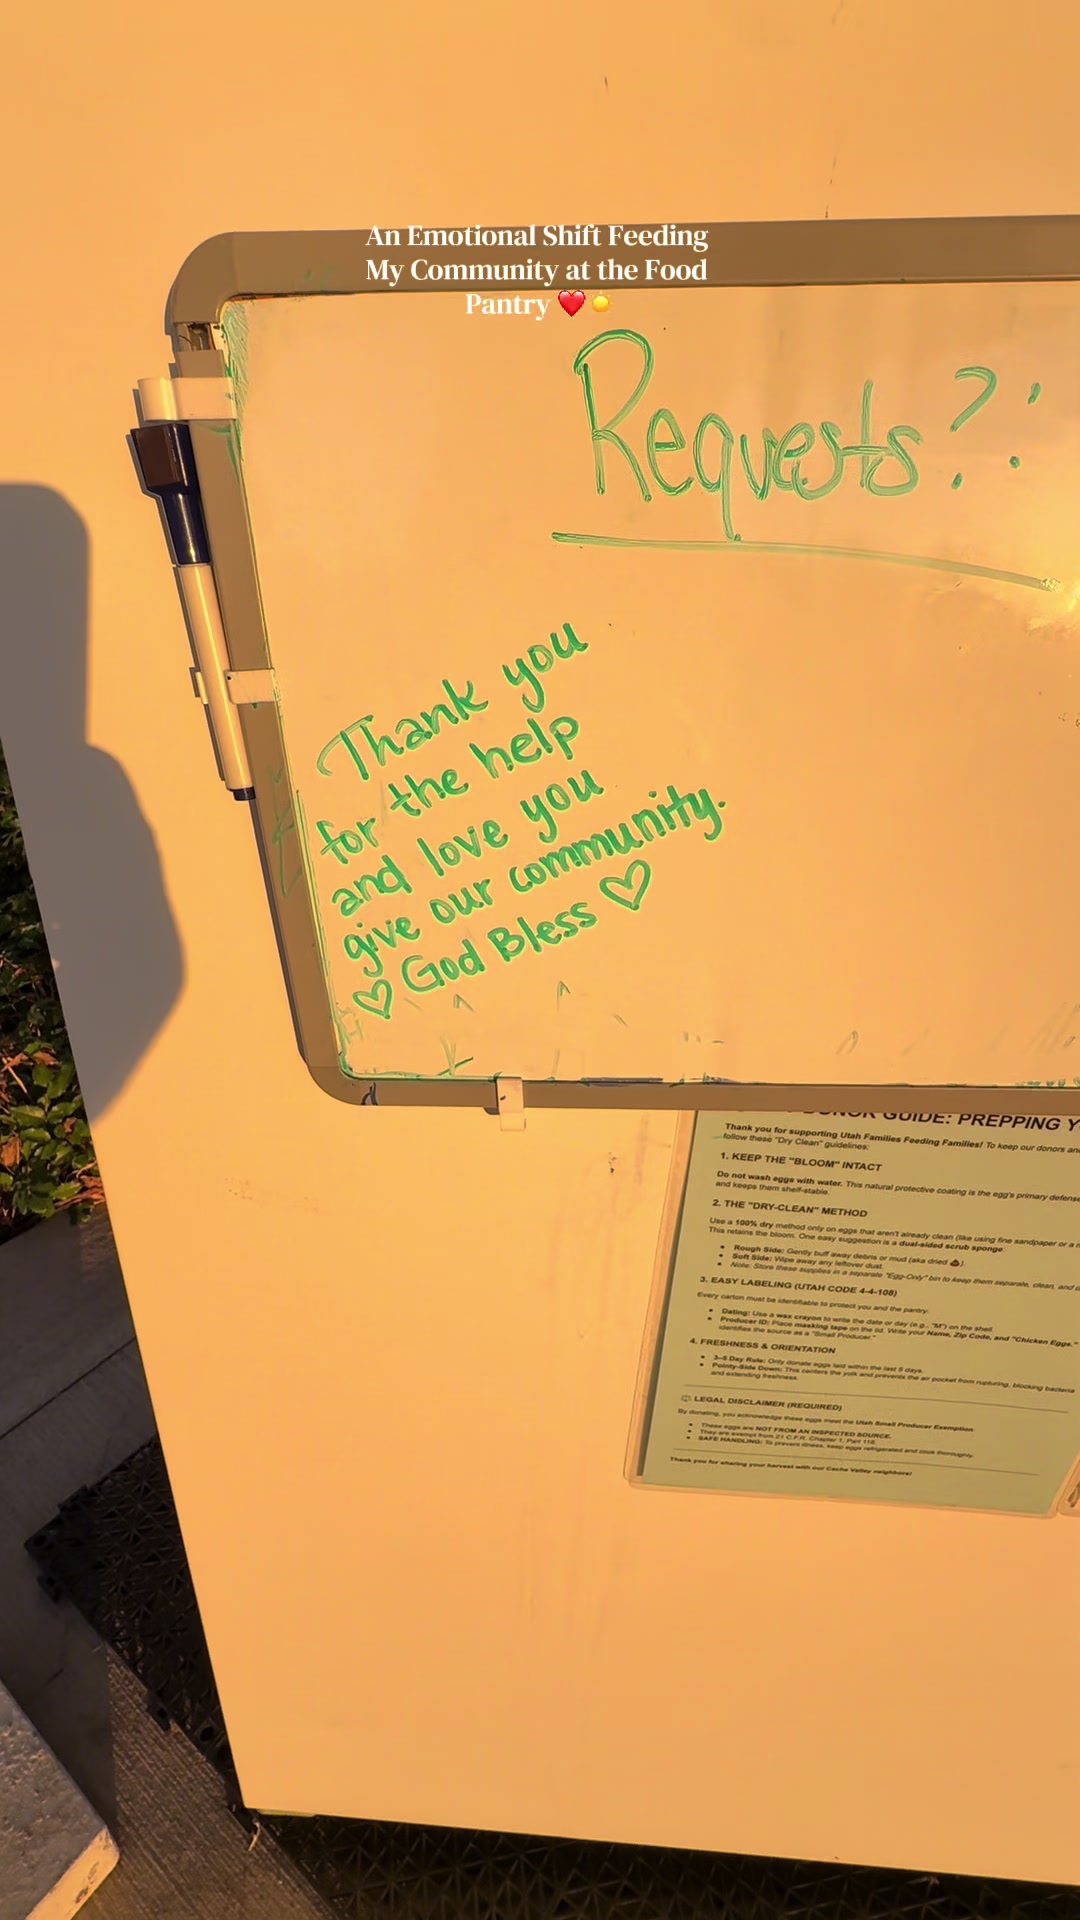 An Emotional Shift Feeding
My Community at the Food
Pantry ❤️☀️
Requests?:
Thank you
for the help
and love you
give our community.
♡ God Bless ♡
DONOR GUIDE: PREPPING Y
Thank you for supporting Utah Families Feeding Families! To keep our donors an
follow these "Dry Clean" guidelines:
1. KEEP THE "BLOOM" INTACT
Do not wash eggs with water. This natural protective coating is the egg's primary defense
and keeps them shelf-stable.
2. THE "DRY-CLEAN" METHOD
Use a 100% dry method only on eggs that aren't already clean (like using fine sandpaper or a
This retains the bloom. One easy suggestion is a dual-sided scrub sponge:
• Rough Side: Gently buff away debris or mud (aka dried 💩).
• Soft Side: Wipe away any leftover dust.
• Note: Store these supplies in a separate "Egg-Only" bin to keep them separate, clean, and
3. EASY LABELING (UTAH CODE 4-4-108)
Every carton must be identifiable to protect you and the pantry.
• Dating: Use a wax crayon to write the date or day (e.g., "M") on the shell.
• Producer ID: Place masking tape on the lid. Write your Name, Zip Code, and "Chicken Eggs."
identifies the source as a "Small Producer."
4. FRESHNESS & ORIENTATION
• Day Rule: Only donate eggs laid within the last 5 days.
• Pointy-Side Down: This centers the yolk and prevents the air pocket from rupturing, blocking bacteria
and extending freshness.
LEGAL DISCLAIMER (REQUIRED)
By donating, you acknowledge these eggs meet the Utah Small Producer Exemption
• These eggs are NOT FROM AN INSPECTED SOURCE.
• They are exempt from 21 C.F.R. Chapter 1, Part 118.
• SAFE HANDLING: To prevent illness, keep eggs refrigerated and cook thoroughly.
Thank you for sharing your harvest with our Cache Valley neighbors!